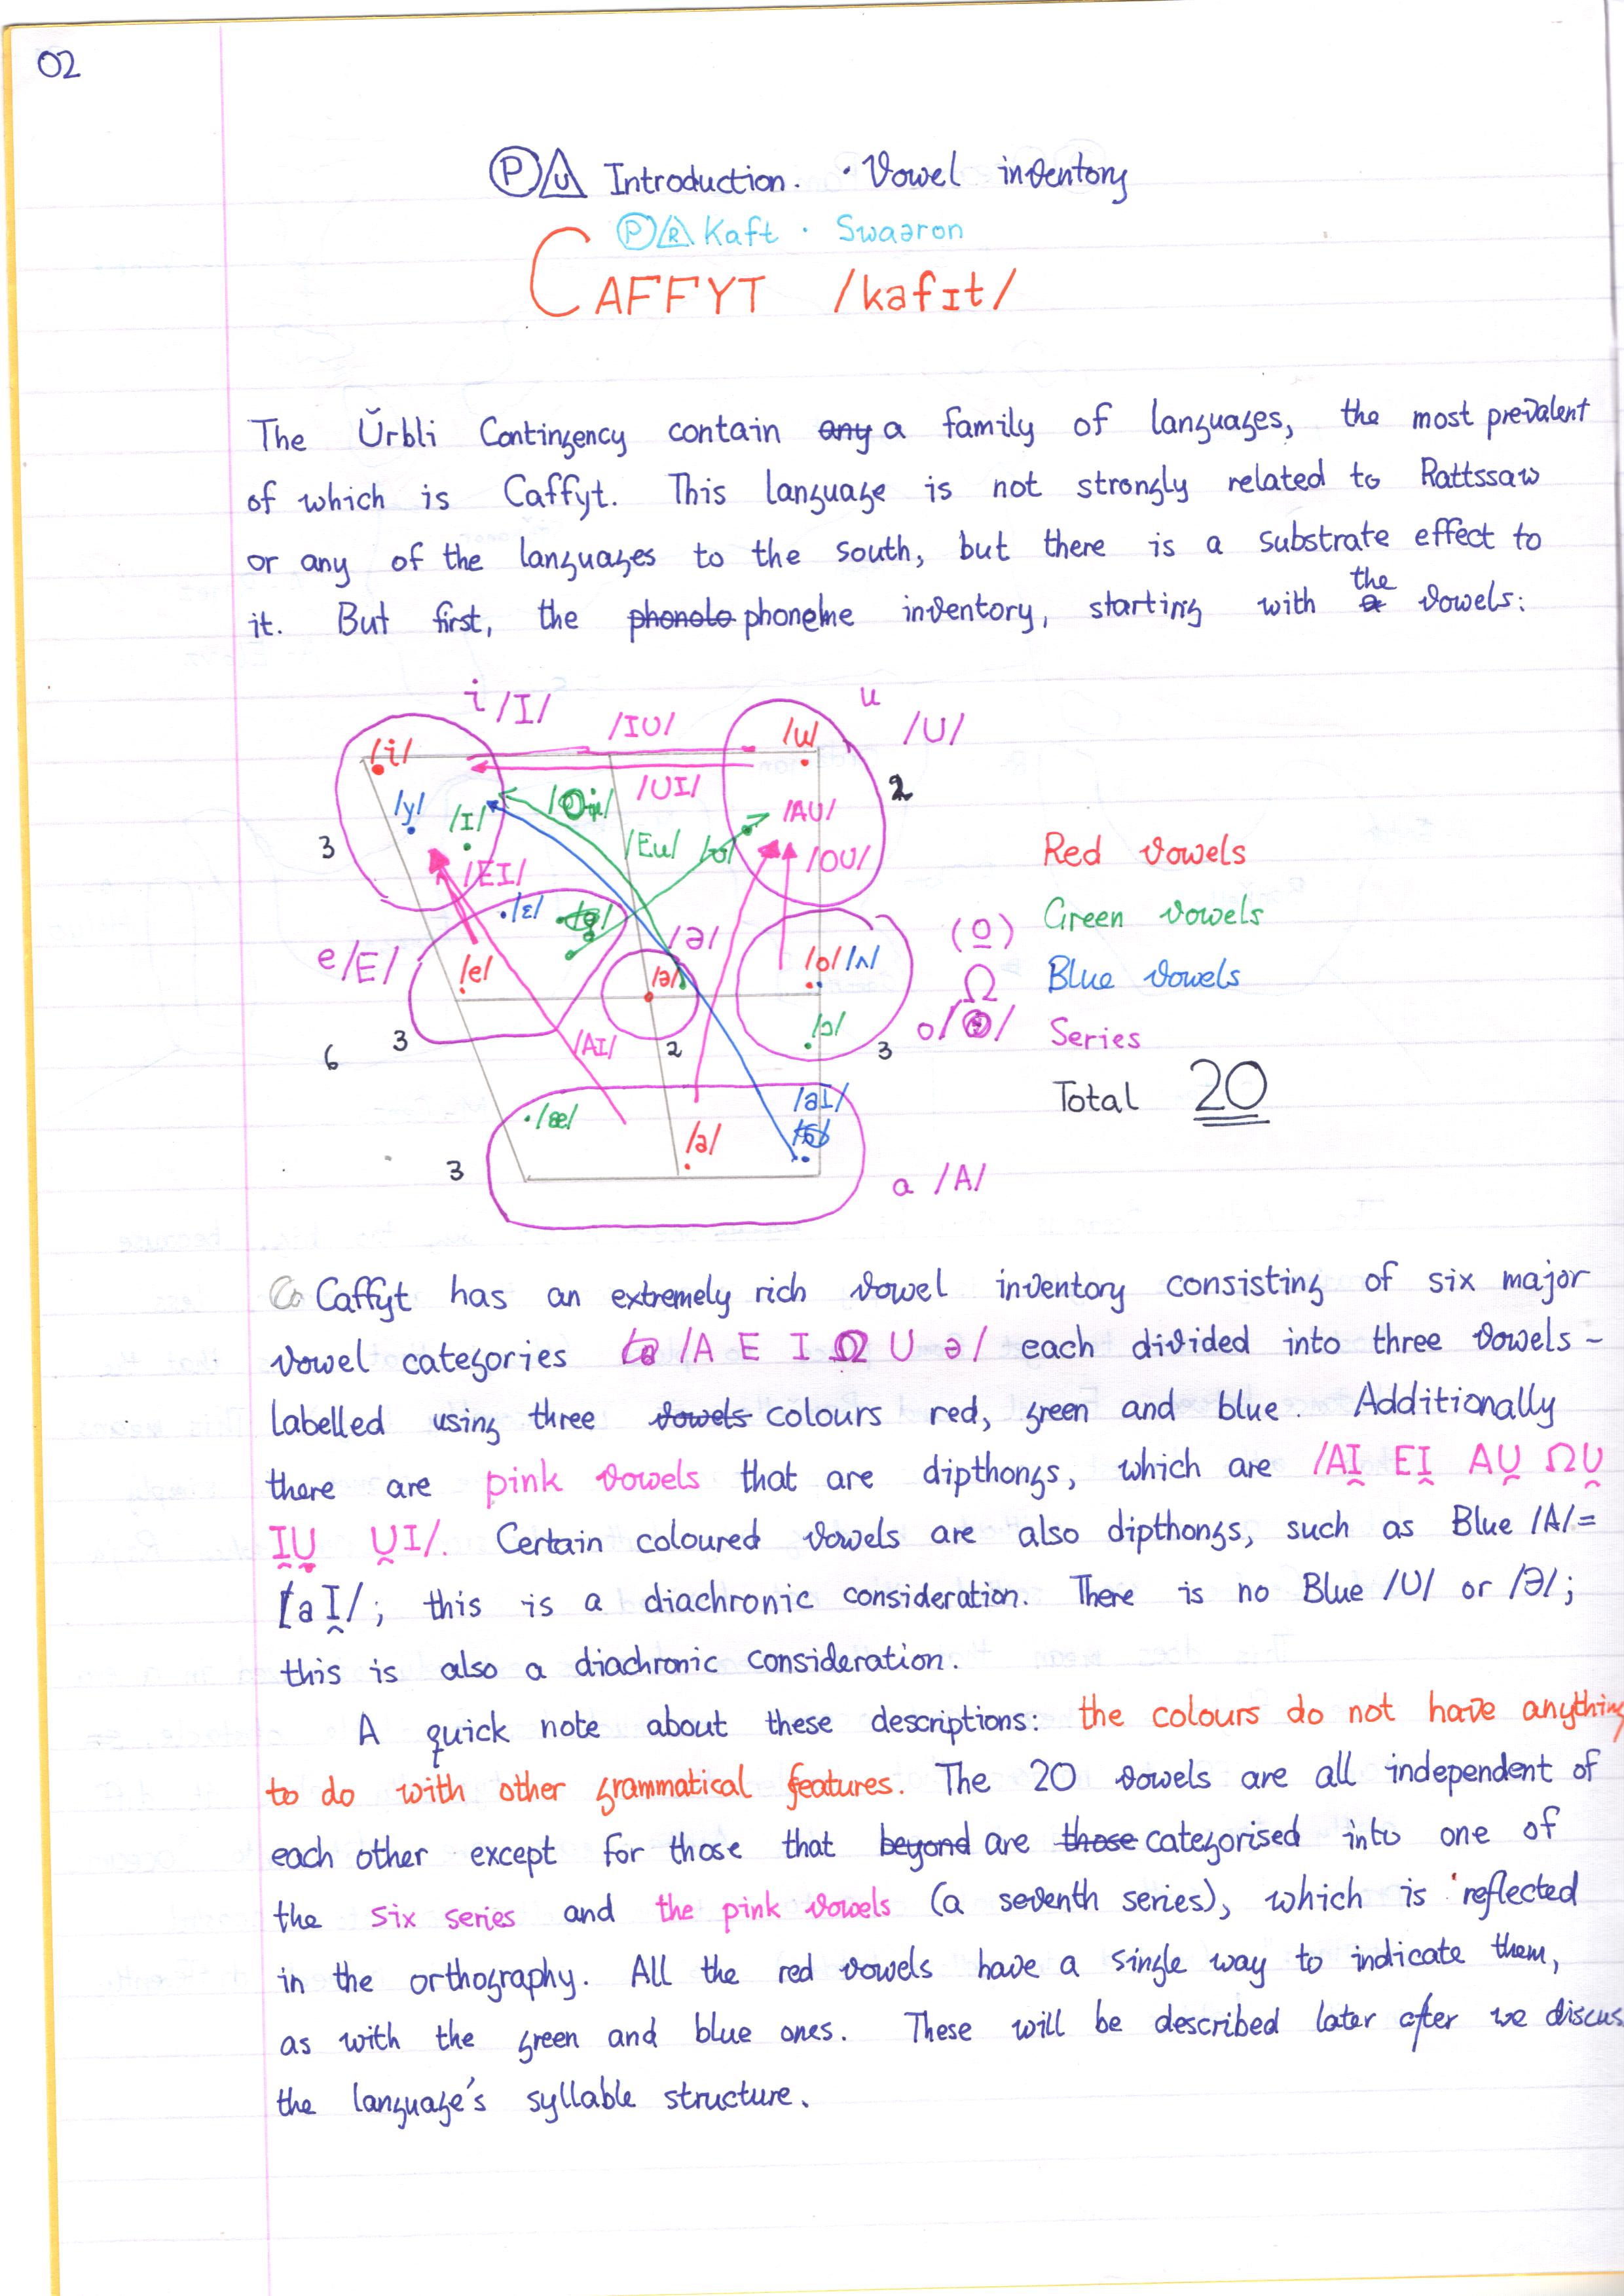 02
Ⓟ U Introduction. · Vowel inventory
Ⓟ R Kaft · Swaaron
CAFFYT /kafɪt/
The Ŭrbli Contingency contain any a family of languages, the most prevalent
of which is Caffyt. This language is not strongly related to Rattssaw
or any of the languages to the south, but there is a substrate effect to
it. But first, the phonolo phoneme inventory, starting with a the vowels:
i /I/
/IU/
u
/U/
/i/
/u/
/UI/
2
/y/
/ɪ/
/AU/
3
/Eu/
/ʊ/
/EI/
/OU/
Red vowels
/ɛ/
/ə/
(o̲)
Green vowels
e /E/
/e/
/ə/
/o/ /ʌ/
Ω
Blue vowels
/ɔ/
o
Series
6
3
/AI/
2
3
Total 20
/æ/
/a/
/aI/
3
a /A/
Caffyt has an extremely rich vowel inventory consisting of six major
vowel categories /A E I Ω U ə/ each divided into three vowels –
labelled using three vowels colours red, green and blue. Additionally
there are pink vowels that are dipthongs, which are /AI̯ EI̯ AU̯ ΩU̯
I̯U̯ U̯I/. Certain coloured vowels are also dipthongs, such as Blue /A/=
[aI̯/; this is a diachronic consideration. There is no Blue /U/ or /ə/;
this is also a diachronic consideration.
A quick note about these descriptions: the colours do not have anything
to do with other grammatical features. The 20 vowels are all independent of
each other except for those that beyond are those categorised into one of
the six series and the pink vowels (a seventh series), which is reflected
in the orthography. All the red vowels have a single way to indicate them,
as with the green and blue ones. These will be described later after we discus
the language's syllable structure.